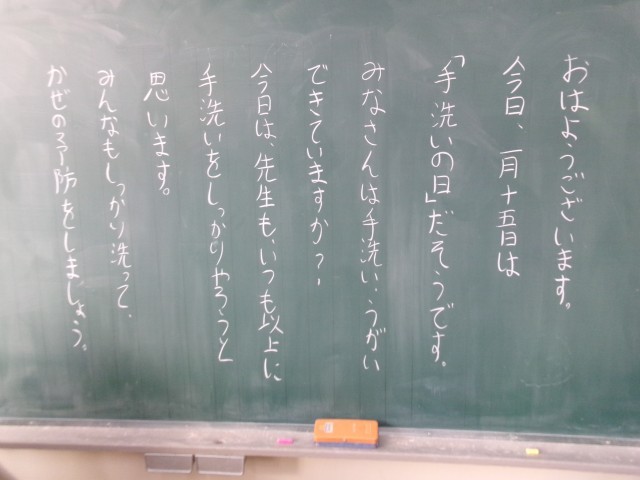 おはようございます。
今日、一月十五日は
「手洗いの日」だそうです。
みなさんは手洗い、うがい
できていますか？
今日は、先生も、いつも以上に
手洗いをしっかりやろうと
思います。
みんなもしっかり洗って、
かぜの予防をしましょう。